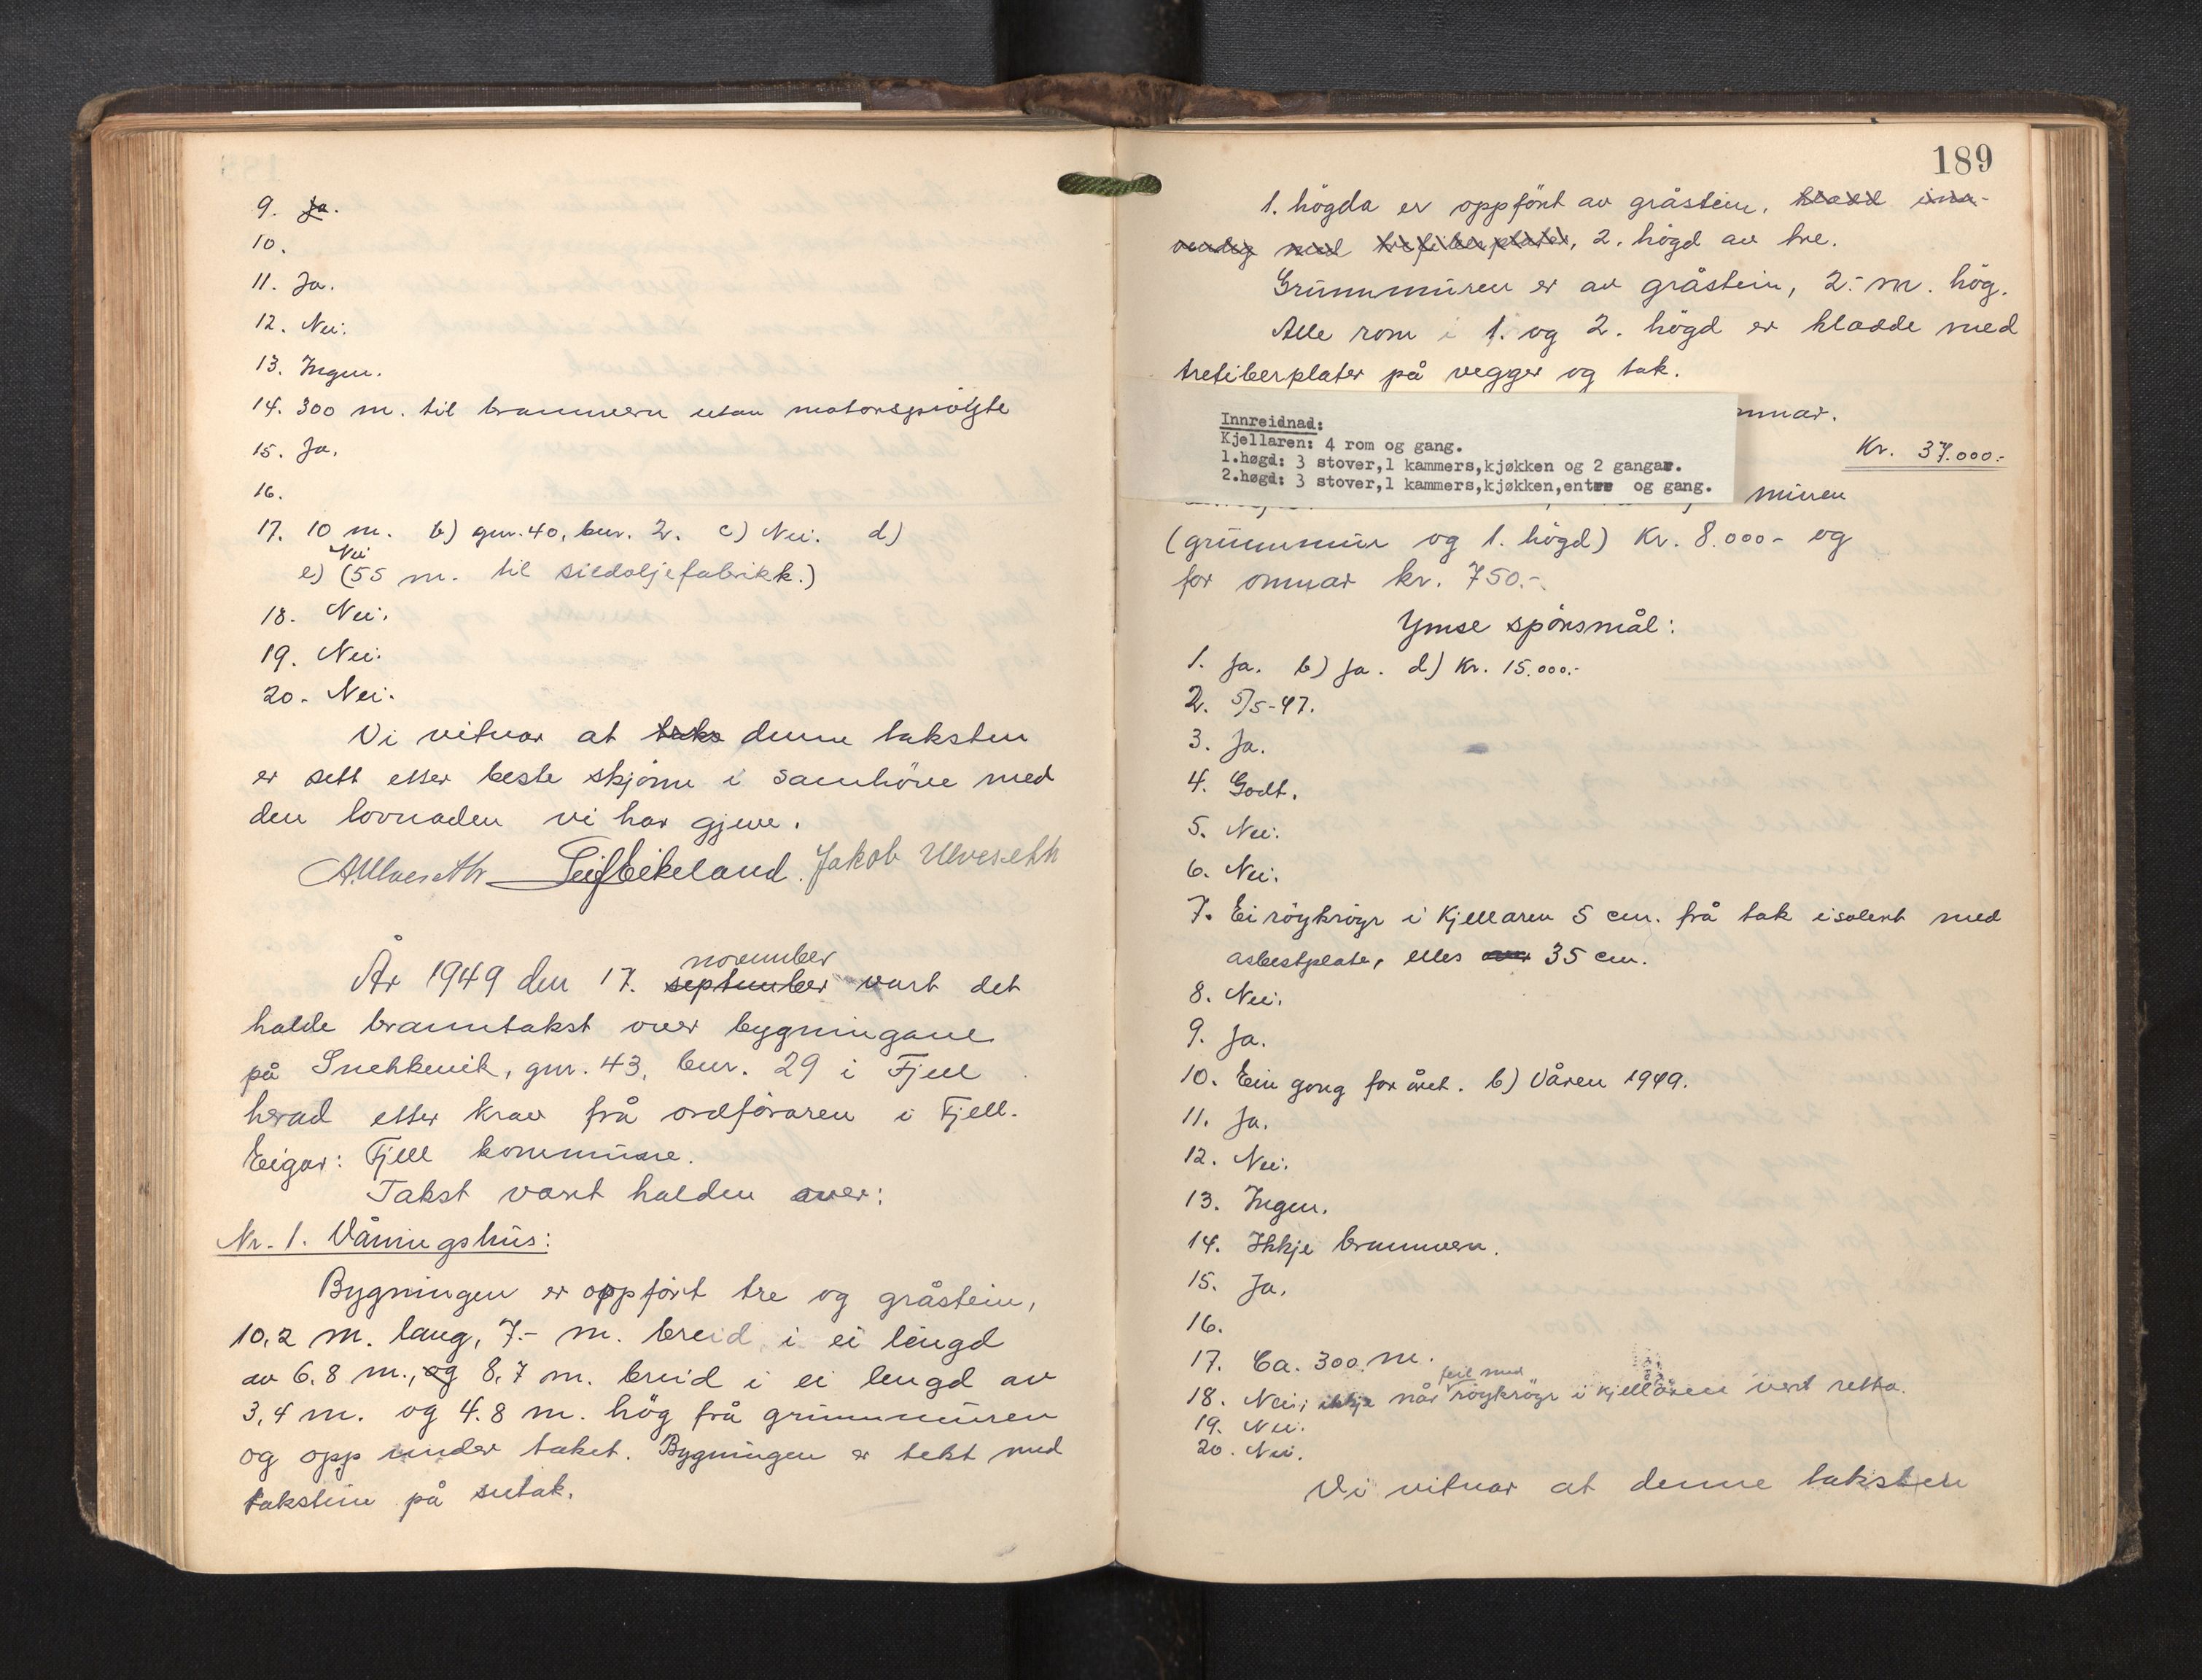 9. Ja.
10.
11. Ja.
12. Nei.
13. Ingen.
14. 300 m. til brannvern utan motorsprøyte
15. Ja.
16.
17. 10 m. b) gnr. 40, bnr. 2. c) Nei. d)
Nei
e) (55 m. til sildoljefabrikk.)
18. Nei.
19. Nei.
20. Nei.
Vi vitnar at taks denne taksten
er sett etter beste skjönn i samhöve med
den lovnaden vi har gjeve.
A. Ulveseth Leif Eikeland. Jakob Ulveseth
november
År 1949 den 17. september vart det
halde branntakst over bygningane
på Snekkevik, gnr. 43, bnr. 29 i Fjell
herad etter krav frå ordföraren i Fjell.
Eigar: Fjell kommune.
Takst vart halden over:
Nr. 1. Våningshus:
Bygningen er oppfört tre og gråstein,
10,2 m. lang, 7.- m. breid i ei lengd
av 6.8 m., og 8,7 m. breid i ei lengd av
3,4 m. og 4.8 m. hög frå grunnmuren
og opp under taket. Bygningen er tekt med
takstein på sutak.
189
1. högda er oppfört av gråstein, kledd inn-
vendig med trefiberplater, 2. högd av tre.
Grunnmuren er av gråstein, 2.- m. hög.
Alle rom i 1. og 2. högd er kledde med
trefiberplater på vegger og tak.
omnar.
Innreidnad:
Kjellaren: 4 rom og gang.
1.høgd: 3 stover,1 kammers,kjøkken og 2 gangar.
2.høgd: 3 stover,1 kammers,kjøkken,entre og gang.
Kr. 37.000.-
muren
(grunnmur og 1. högd) Kr. 8.000- og
for omnar kr. 750.-
Ymse spörsmål:
1. Ja. b) Ja. d) Kr. 15.000.-
2. 5/5-47.
3. Ja.
4. Godt.
5. Nei.
6. Nei.
7. Ei röykröyr i Kjellaren 5 cm. frå tak isolert med
asbestplate, elles 35 cm.
8. Nei.
9. Ja.
10. Ein gong for året. b) Våren 1949.
11. Ja.
12. Nei.
13. Ingen.
14. Ikkje brannvern.
15. Ja.
16.
17. Ca. 300 m.
feil med
18. Nei, ikkje når röykröyr i kjellaren vert retta.
19. Nei.
20. Nei.
Vi vitnar at denne taksten